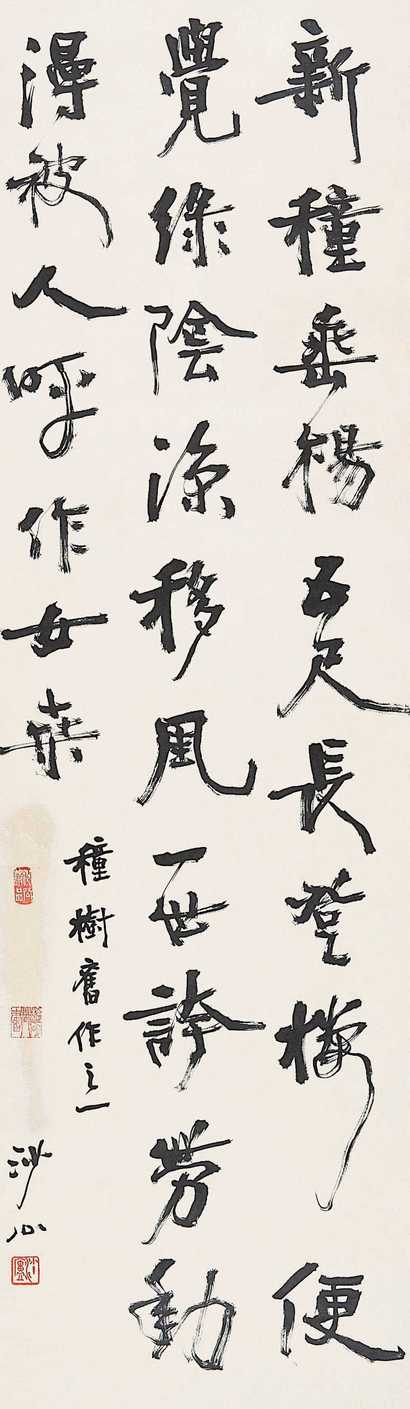 新種垂楊五尺長登樓便
覺綠陰涼移風一世誇勞動
得被人呼作女桒
種樹舊作之一
沙